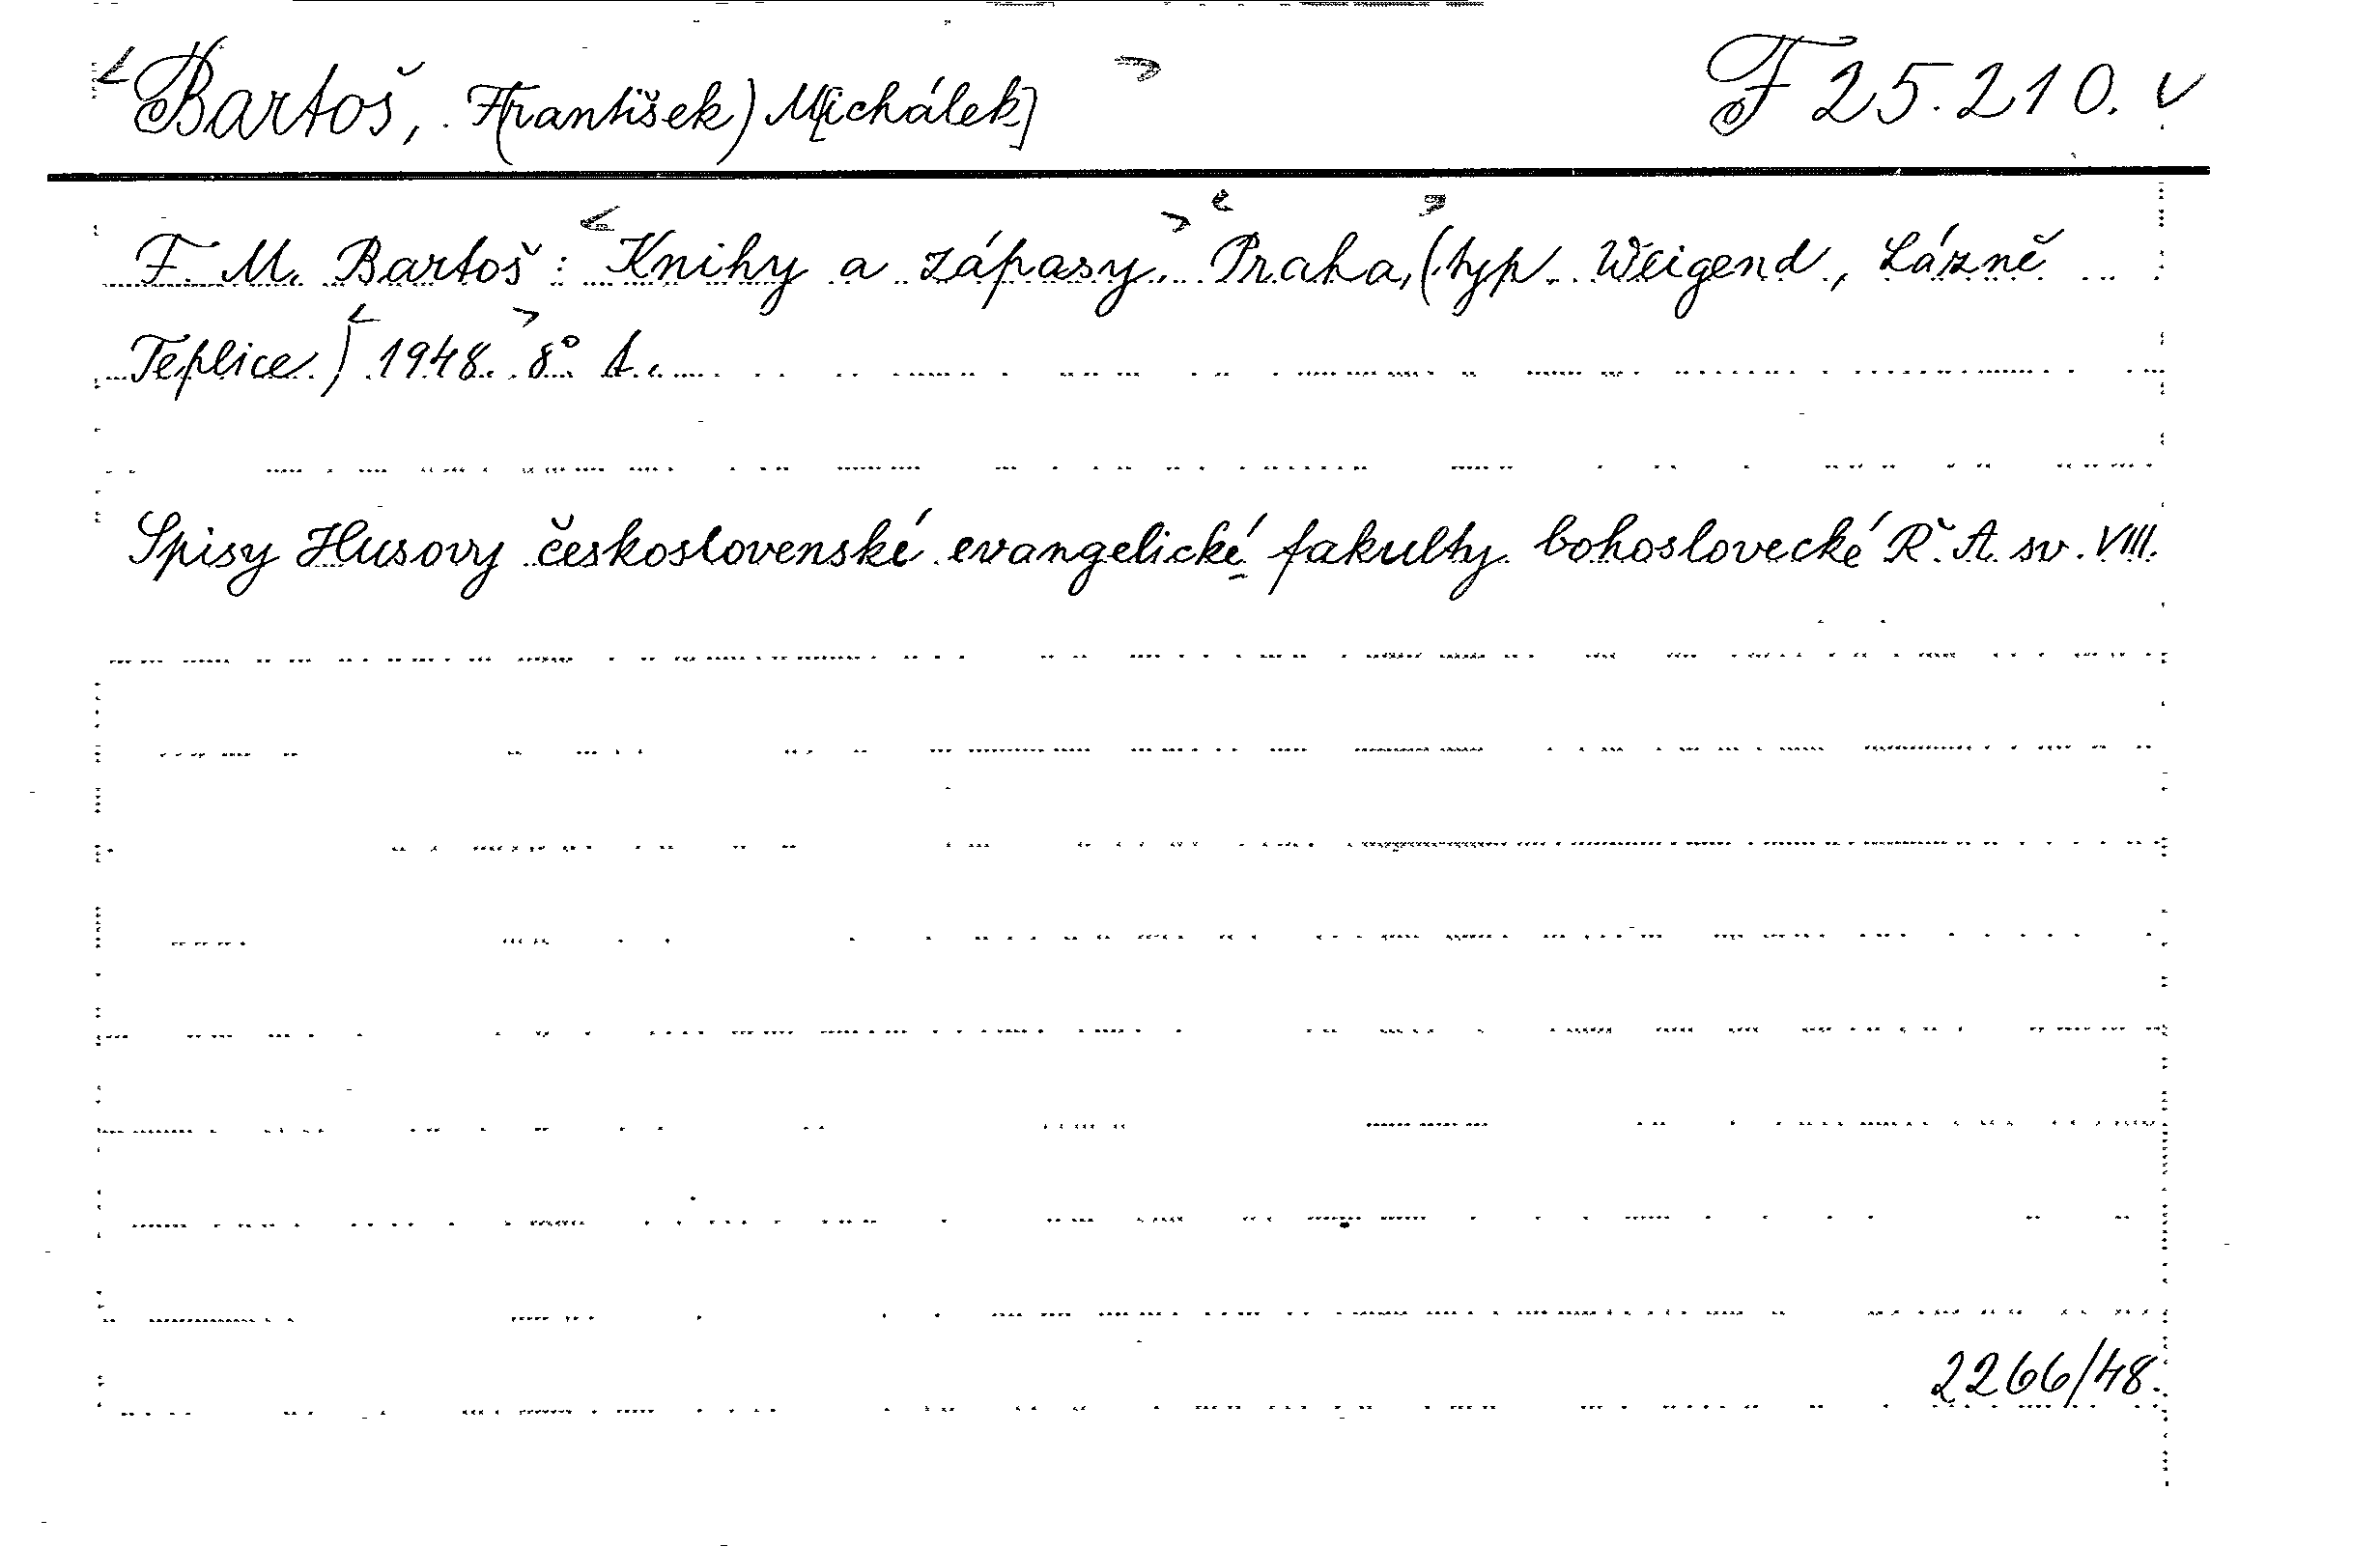 <Bartoš, F(rantišek) M[ichálek]> F 25.210. v
F. M. Bartoš: <Knihy a zápasy.> <Praha,> (typ. Weigend, Lázně
Teplice) <1948.> 8° A.
Spisy Husovy československé evangelické fakulty bohoslovecké Ř. A. sv. VIII.
2266/48.